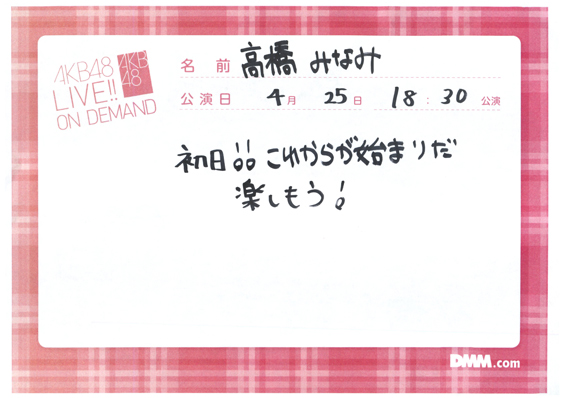 AKB48
LIVE!!
ON DEMAND
AKB
48
名 前 高橋 みなみ
公演日 4月 25日 18:30 公演
初日!! これからが始まりだ
楽しもう!
DMM.com